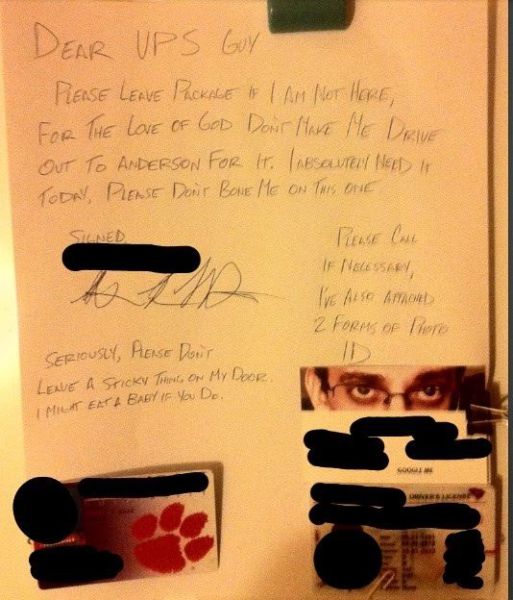 DEAR UPS GUY
PLEASE LEAVE PACKAGE IF I AM NOT HERE,
FOR THE LOVE OF GOD DON'T MAKE ME DRIVE
OUT TO ANDERSON FOR IT. I ABSOLUTELY NEED IT
TODAY, PLEASE DON'T BONE ME ON THIS ONE.
SIGNED,
PLEASE CALL
IF NECESSARY,
I'VE ALSO ATTACHED
2 FORMS OF PHOTO
ID
SERIOUSLY, PLEASE DON'T
LEAVE A STICKY THING ON MY DOOR.
I MIGHT EAT A BABY IF YOU DO.
GOOGLE ME
DRIVER'S LICENSE